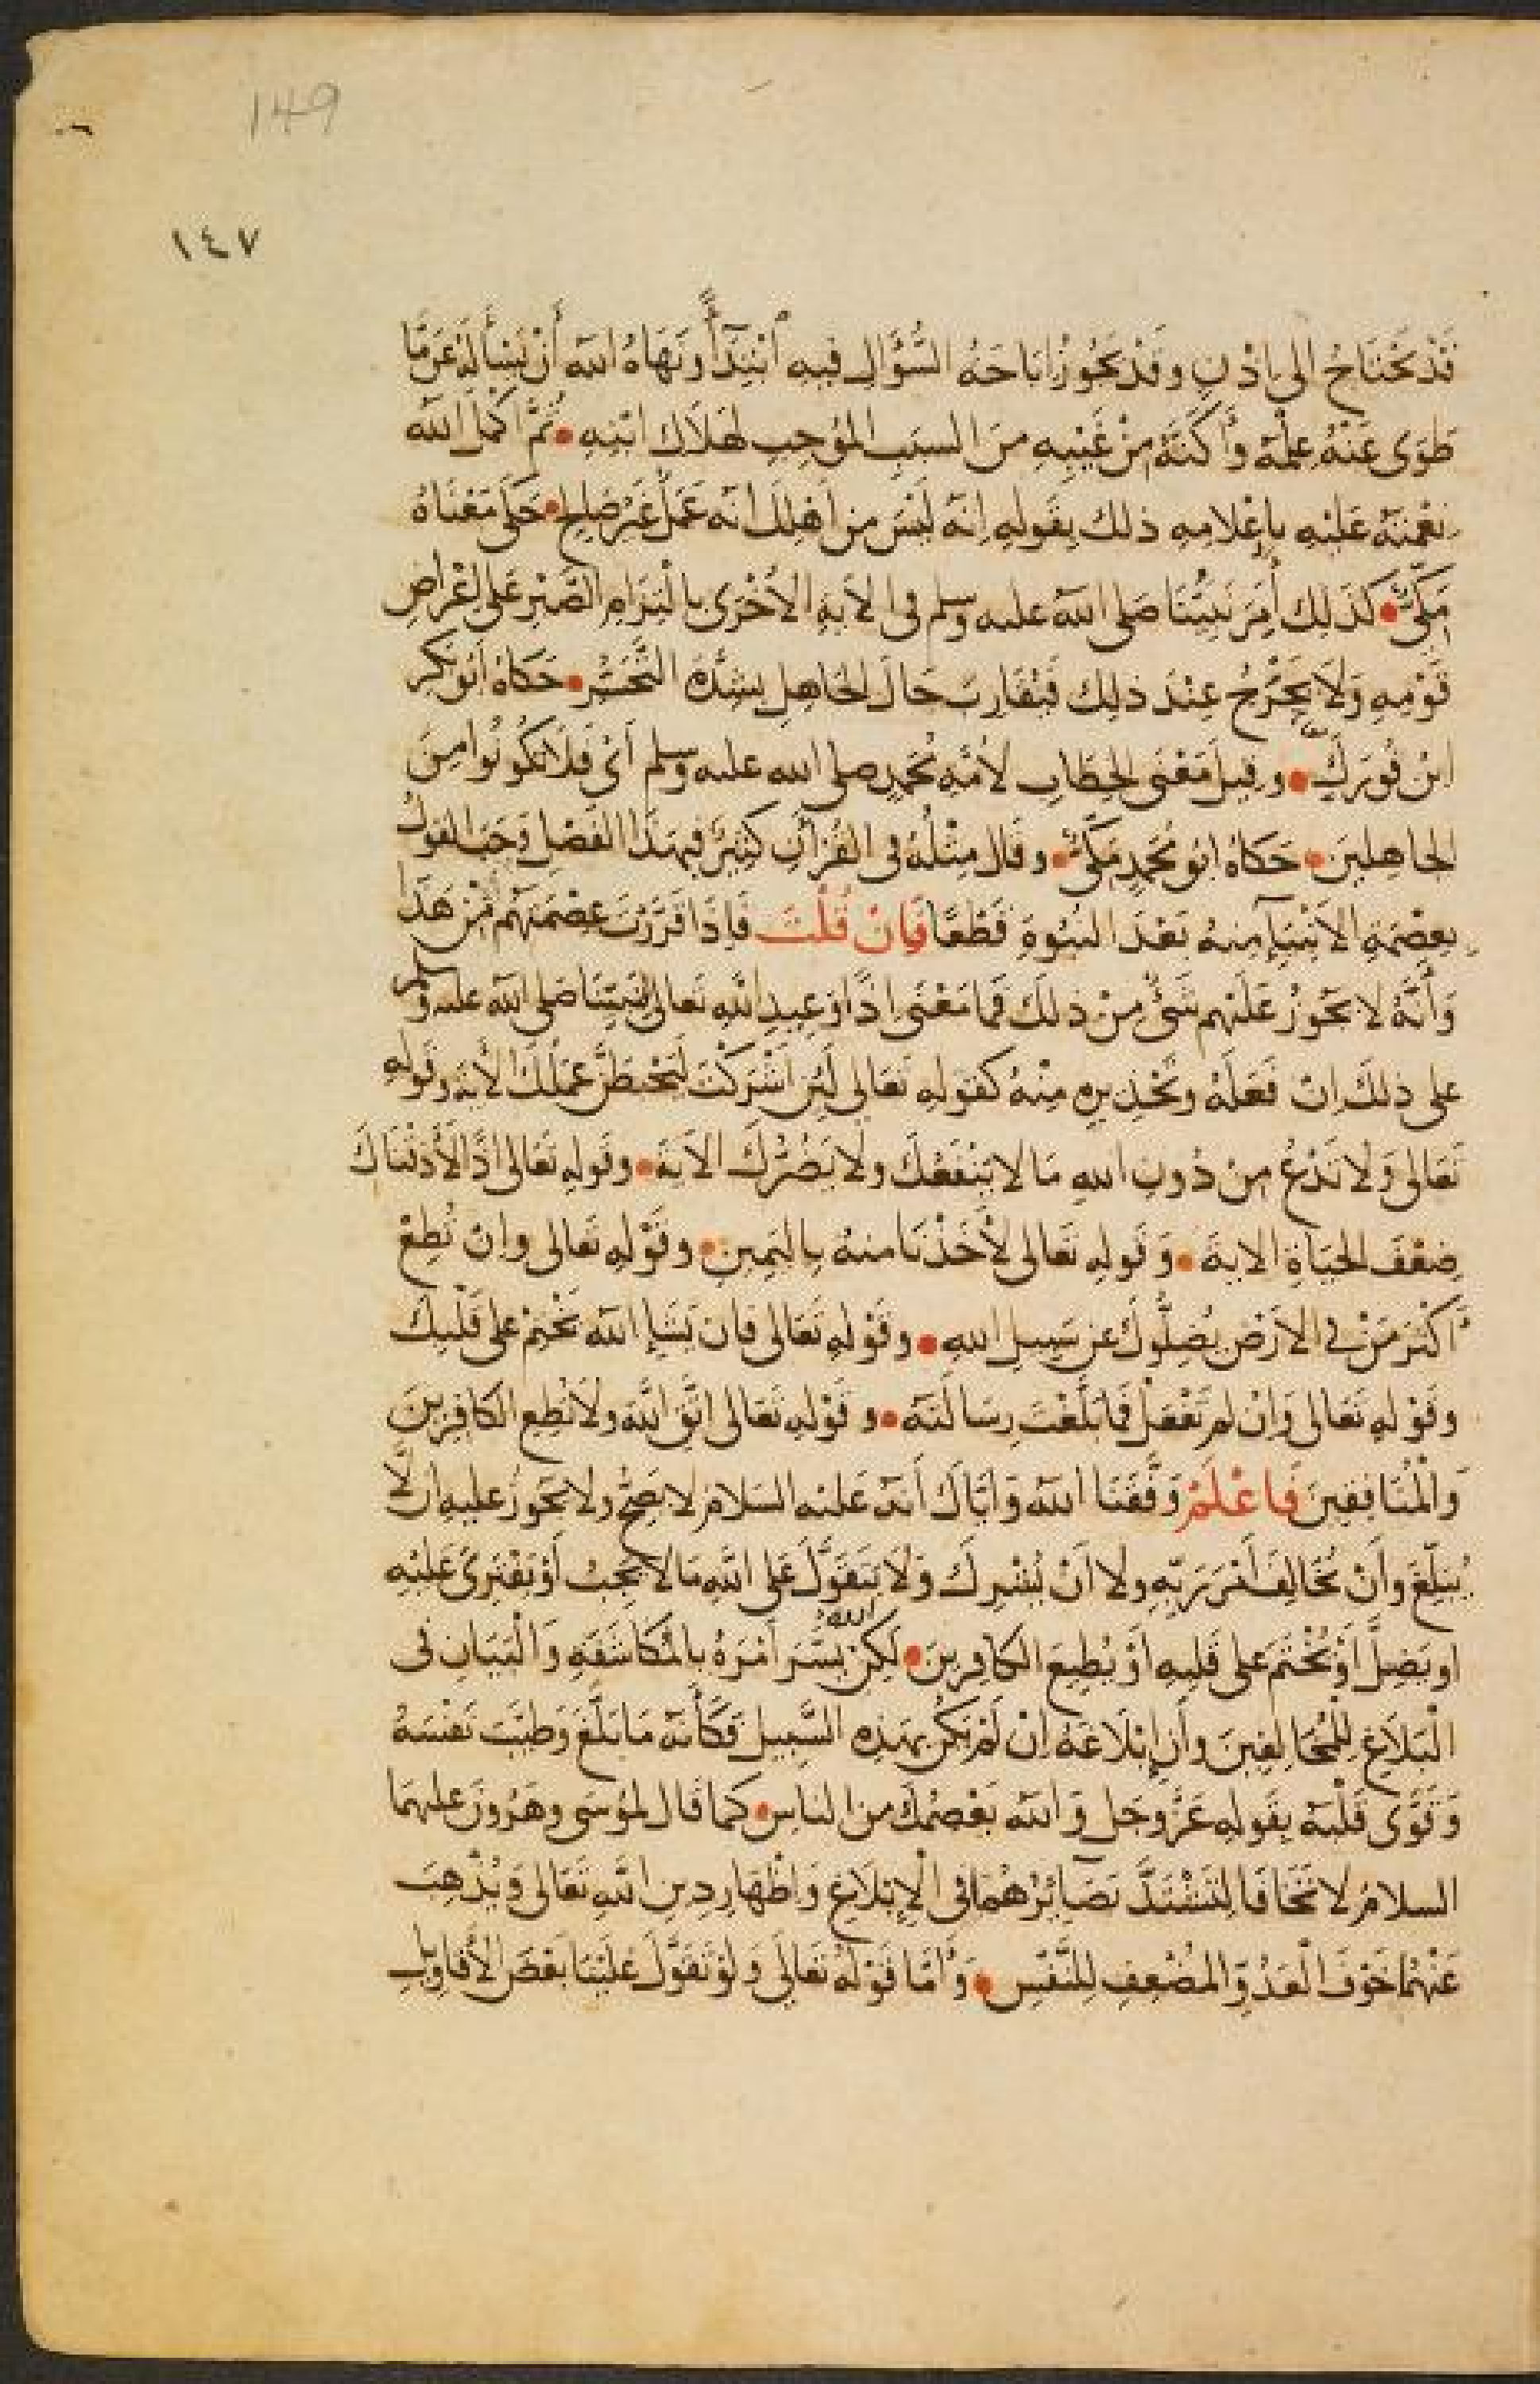 149
١٤٧
قَدْ تَحْتَاجُ الى اِذْنٍ وقَدْ تَجُوزُ اِبَاحَةُ السُّؤَالِ فيهِ ابْتِدَآءً ونَهَاهُ الله أَنْ يَسْأَلَهُ عَمَّا
طَوَى عَنْهُ عِلْمَهُ وأَكَنَّهُ مِنْ غَيْبِهِ مِنَ السبَبِ المُوجِبِ لهَلَاكِ ابْنِهِ • ثُمَّ اكْمَلَ الله
نِعْمَتَهُ عَلَيْهِ بِاِعْلَامِهِ ذلِك بِقَولِهِ اِنَّهُ لَيْسَ مِن اَهْلِكَ انَّه عَمَلٌ غَيْرُ صَالِحٍ • حَكَى مَعْنَاهُ
مَكِّيٌّ • كذَلِكَ أُمِرَ نَبِيُّنَا صَلى الله عليه وسلم فى الآيَةِ الأُخْرَى بِالْتِزَامِ الصَّبْرِ عَلى اِعْرَاضِ
قَوْمِهِ وَلَا يَحْرَجُ عِنْدَ ذلِك فَيُقَارِبَ حَالَ الجَاهِلِ بِشِدَّةِ التَّحَسُّرِ • حَكاهُ ابُو بَكرِ
ابْنِ فُورَكٍ • وقيلَ مَعْنَى الخِطَابِ لأُمَّةِ مُحَمَّدٍ صلى الله عليه وسلم أَىْ فَلَا تَكُونُوا مِنَ
الجاهِلينَ • حَكَاهُ ابُو مُحَمدٍ مَكِّيٌّ • وقَال مِثْلُهُ فى القُرْآنِ كَثِيرٌ فبِهَذَا الفَضْلِ وَجَبَ القَولُ
بِعِصْمَةِ الأَنْبِيَآءِ مِنهُ بَعْدَ النبُوةِ قَطْعًا فَاِنْ قُلْتَ فَاِذَا قَرَّرْتَ عِصْمَتَهُمْ مِنْ هَذَا
وَأَنَّهُ لا يَجُوزُ عَلَيْهِم شَىْءٌ مِنْ ذلكَ فَمَا مَعْنَى اِذًا وَعِيدِ اللهِ تَعالى لنَبِيِّنَا صَلى الله عليه وسلم
على ذلِكَ اِن فَعَلَهُ وتَحْذِيرِهِ مِنْهُ كقَوْلِهِ تَعَالى لَئِنْ اَشْرَكْتَ لَيَحْبَطَنَّ عَمَلُكَ الآيةَ وقَولِهِ
تَعَالى وَلا تَدْعُ مِنْ دُونِ اللهِ مَا لا يَنْفَعُكَ ولا يَضُرُّكَ الآيَةَ • وقَولِهِ تَعَالى اِذًا لَأَذَقْنَاكَ
ضِعْفَ الحَيَاةِ الايةَ • وَقَولِهِ تَعَالى لأَخَذْنَا مِنهُ بِاليَمِينِ • وقَوْلِهِ تَعَالى وإِنْ تُطِعْ
أَكْثَرَ مَنْ في الأَرْضِ يُضِلُّوكَ عَن سَبِيلِ الله • وقَوْلِهِ تَعَالى فاِن يَشَإِ اللهُ يَخْتِمْ عَلى قَلْبِكَ
وقَوْلِهِ تَعَالى وَاِنْ لم تَفْعَلْ فَمَا بَلَّغْتَ رِسَالَتَهُ • وقَوْلِهِ تَعَالى اتَّقِ اللهَ ولَا تُطِعِ الكَافِرِينَ
وَالمُنَافِقِينَ فَاعْلَمْ وَفَّقَنَا الله وَاِيَّاكَ أَنَّه عَلَيْه السَلامُ لا يَصِحُّ ولا يَجُوزُ عليهِ ان لَّا
يُبَلِّغَ وأَنْ يُخَالِفَ أَمْرَ رَبِّهِ ولا أَنْ يُشْرِكَ وَلَا يَتَقَوَّلَ عَلى اللهِ مَا لا يَجِبُ أَوْ يَفْتَرِىَ عَلَيْهِ
او يَضِلَّ أَوْ يُخْتَمَ عَلى قَلبِهِ أَوْ يُطِيعَ الكافِرِينَ • لكِنْ يَسَّرَ الله أَمْرَهُ بِالمُكَاشَفَةِ وَالْبَيَانِ فى
الْبَلَاغِ لِلْمُخَالِفِينَ وأَن اِبْلَاغَهُ اِنْ لَمْ يَكُنْ بِهَذِهِ السَّبِيلِ فَكَأَنَّه مَا بَلَّغَ وَطَيَّبَ نَفْسَهُ
وَقَوَّى قَلْبَهُ بِقَولِهِ عَزَّ وجَلَّ وَالله يَعْصِمُكَ مِنَ الناسِ • كمَا قَال لِمُوسَى وهَرُونَ عَليهِمَا
السلامُ لا تَخَافَا لِتَشْتَدَّ بَصَآئِرُهُمَا فى الْاِبْلَاغِ وَاِظْهَارِ دِينِ اللهِ تَعَالى وَيُذْهِبَ
عَنْهُمَا خَوْفَ الْعَدُوِّ المُضْعِفِ لِلنَّفْسِ • وَأَمَّا قَوْلُهُ تَعَالَى وَلَوْ تَقَوَّلَ عَلَيْنَا بَعْضَ الأَقَاوِيلِ